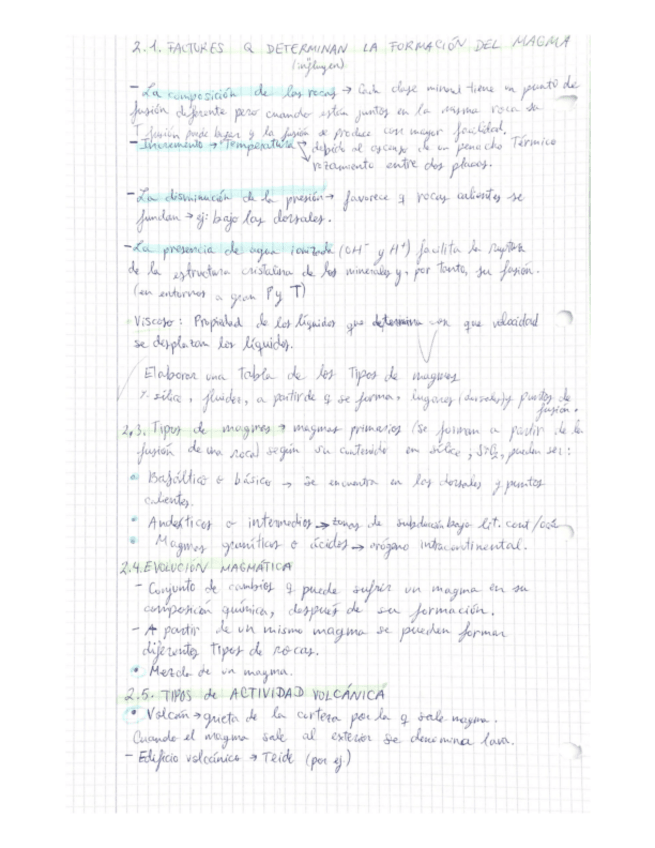 2.1. FACTORES Q DETERMINAN LA FORMACIÓN DEL MAGMA
(influyen)
- La composición de las rocas → Cada clase mineral tiene un punto de
fusión diferente pero cuando están juntos en la misma roca su
T fusión puede bajar y la fusión se produce con mayor facilidad.
- Incremento → Temperatura → debido al ascenso de un penacho Térmico
rozamiento entre dos placas.
- La disminución de la presión → favorece q rocas calientes se
fundan → ej: bajo las dorsales.
- La presencia de agua ionizada (OH⁻ y H⁺) facilita la ruptura
de la estructura cristalina de los minerales y, por tanto, su fusión.
(en entornos a gran P y T)
Viscoso: Propiedad de los líquidos que determina con que velocidad
se desplazan los líquidos.
Elaborar una tabla de los Tipos de magmas
% sílice, fluidez, a partir de q se forma, lugares (dorsales) y puntos de
fusión.
2.3. Tipos de magmas → magmas primarios (se forman a partir de la
fusión de una roca) según su contenido en sílice, SiO₂, pueden ser:
• Basáltico o básico → Se encuentra en las dorsales y puntos
calientes.
• Andesíticos o intermedios → zonas de subducción bajo lit. cont/oceá
• Magmas graníticos o ácidos → orógeno intracontinental.
2.4. EVOLUCIÓN MAGMÁTICA
- Conjunto de cambios q puede sufrir un magma en su
composición química, después de su formación.
- A partir de un mismo magma se pueden formar
diferentes tipos de rocas.
• Mezcla de un magma.
2.5. TIPOS de ACTIVIDAD VOLCÁNICA
• Volcán → grieta de la corteza por la q sale magma.
Cuando el magma sale al exterior se denomina lava.
- Edificio volcánico → Teide (por ej.)